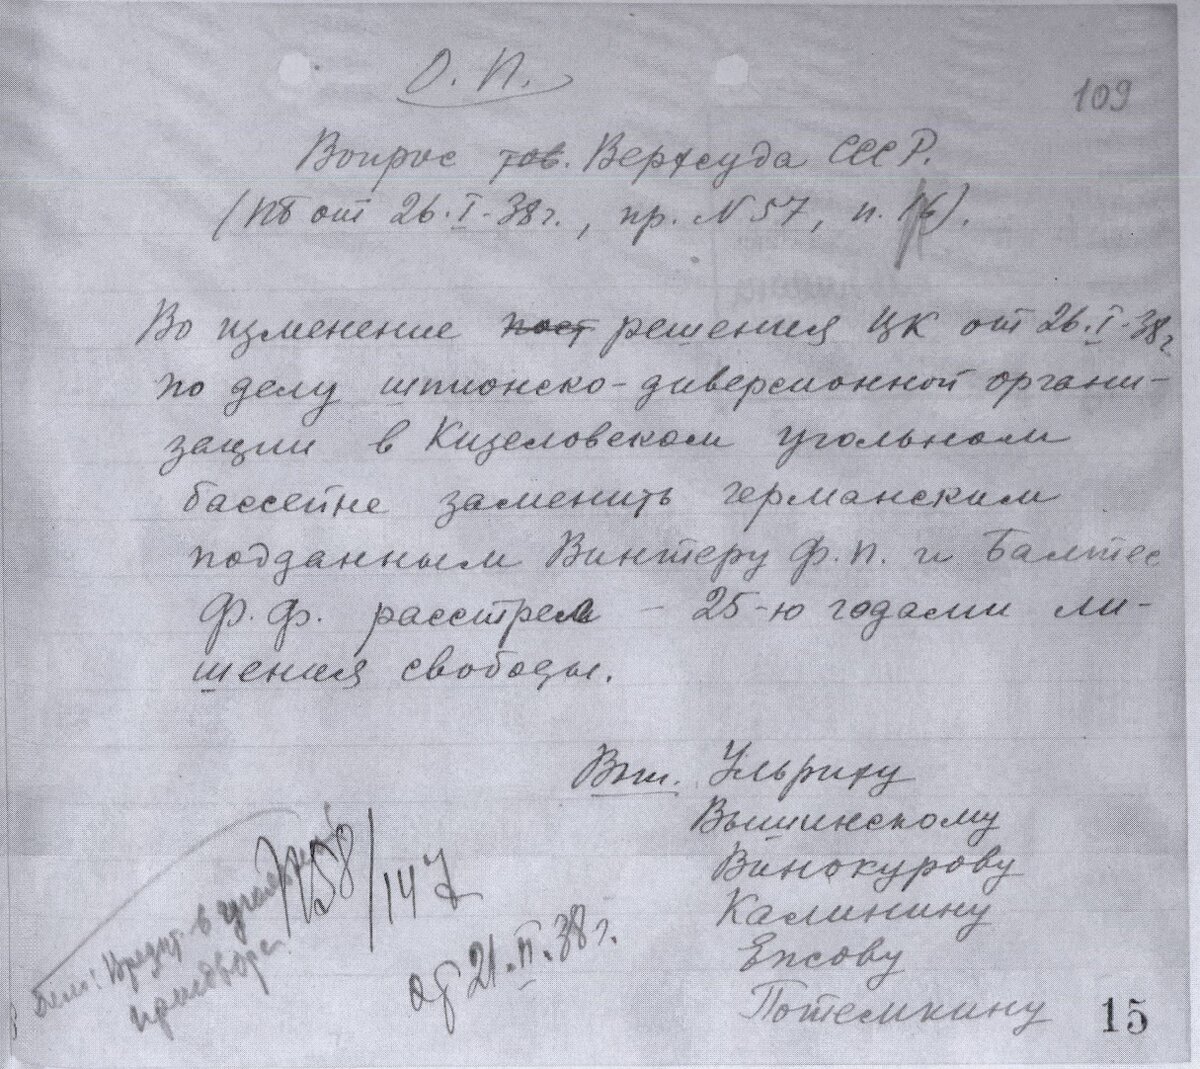 О. П.
109
Вопрос тов. Верхсуда СССР.
(ПБ от 26.I-38г., пр. N 57, п. ).
Во изменение пост решения ЦК от 26.I-38г
по делу шпионско-диверсионной органи-
зации в Кизеловском угольном
бассейне заменить германским
подданным Винтеру Ф.П. и Балтес
Ф.Ф. расстрел — 25-ю годами ли-
шения свободы.
Вып. Ульриху
Вышинскому
Винокурову
Калинину
Ежову
Потемкину
58/147
об 21.II.38г.
в
приговоре.
15